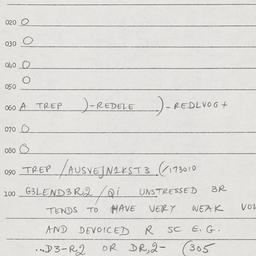 020 O
030 O
040 O
O
050
060 A TREP )-REDELE )-REDLVOG+
070 O
080 O
090 TREP /AUSVEJN2KST3 (/173010
100 G3LEND3R,2 /Qi UNSTRESSED 3R
TENDS TO HAVE VERY WEAK VOW
AND DEVOICED R SC E.G.
..D3-R,2 OR DR,2- (305